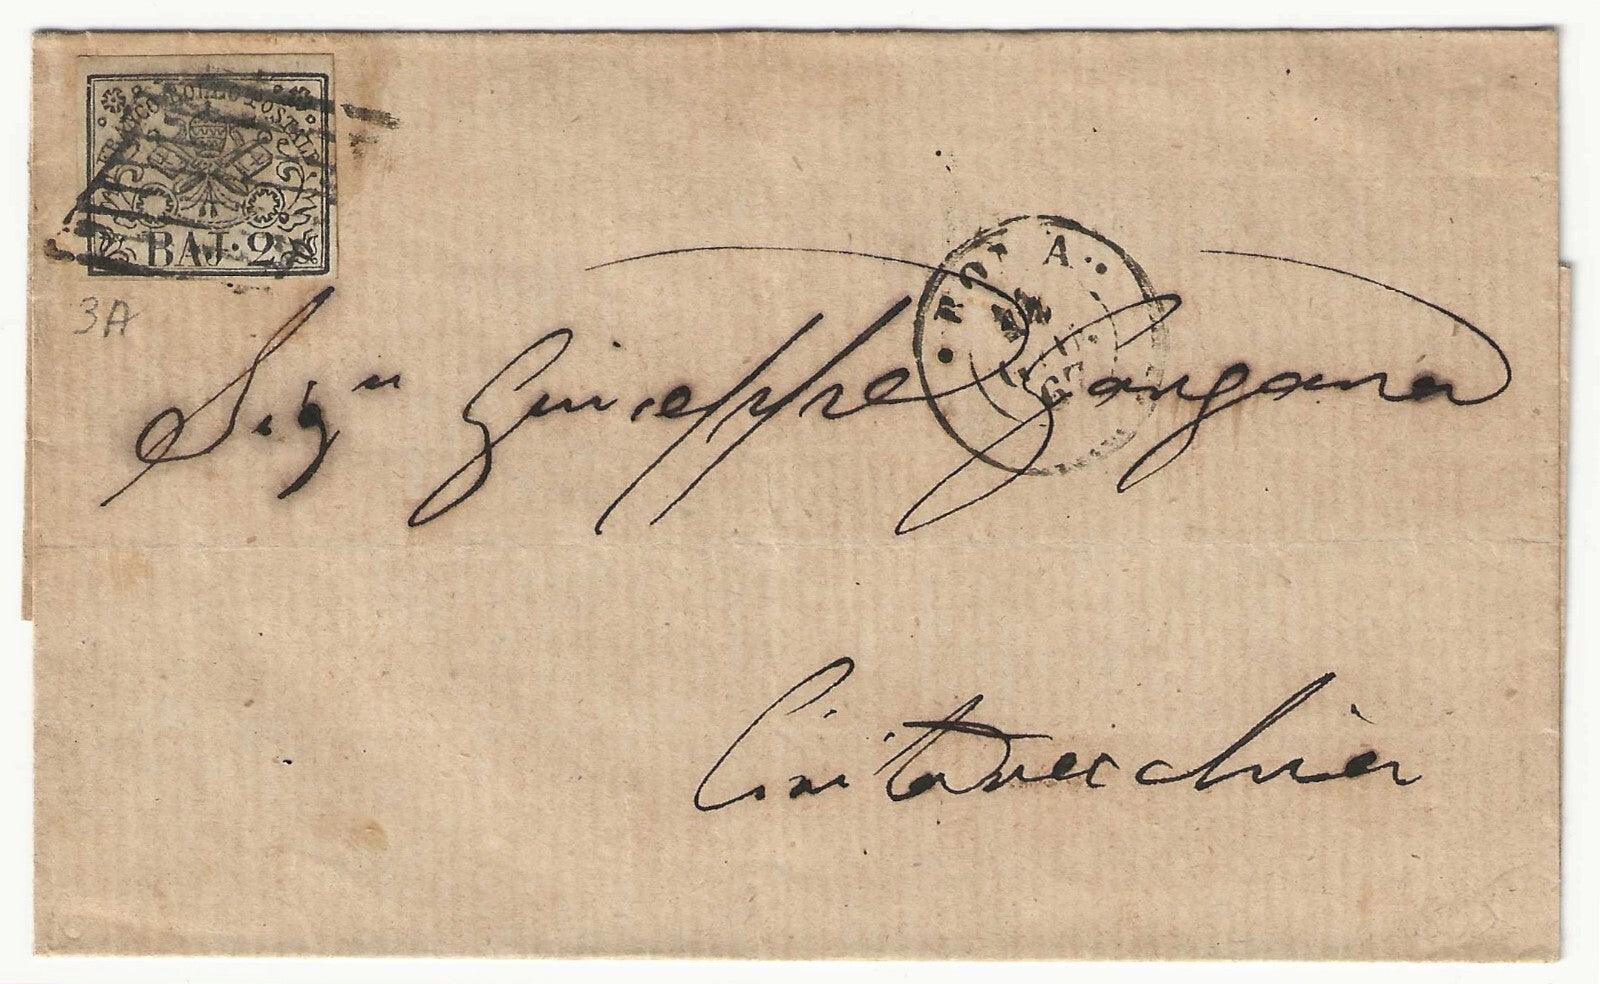 FRANCO BOLLO POSTALE
BAJ. 2
3A
ROMA
67
Sigr Giuseppe
Civitavecchia